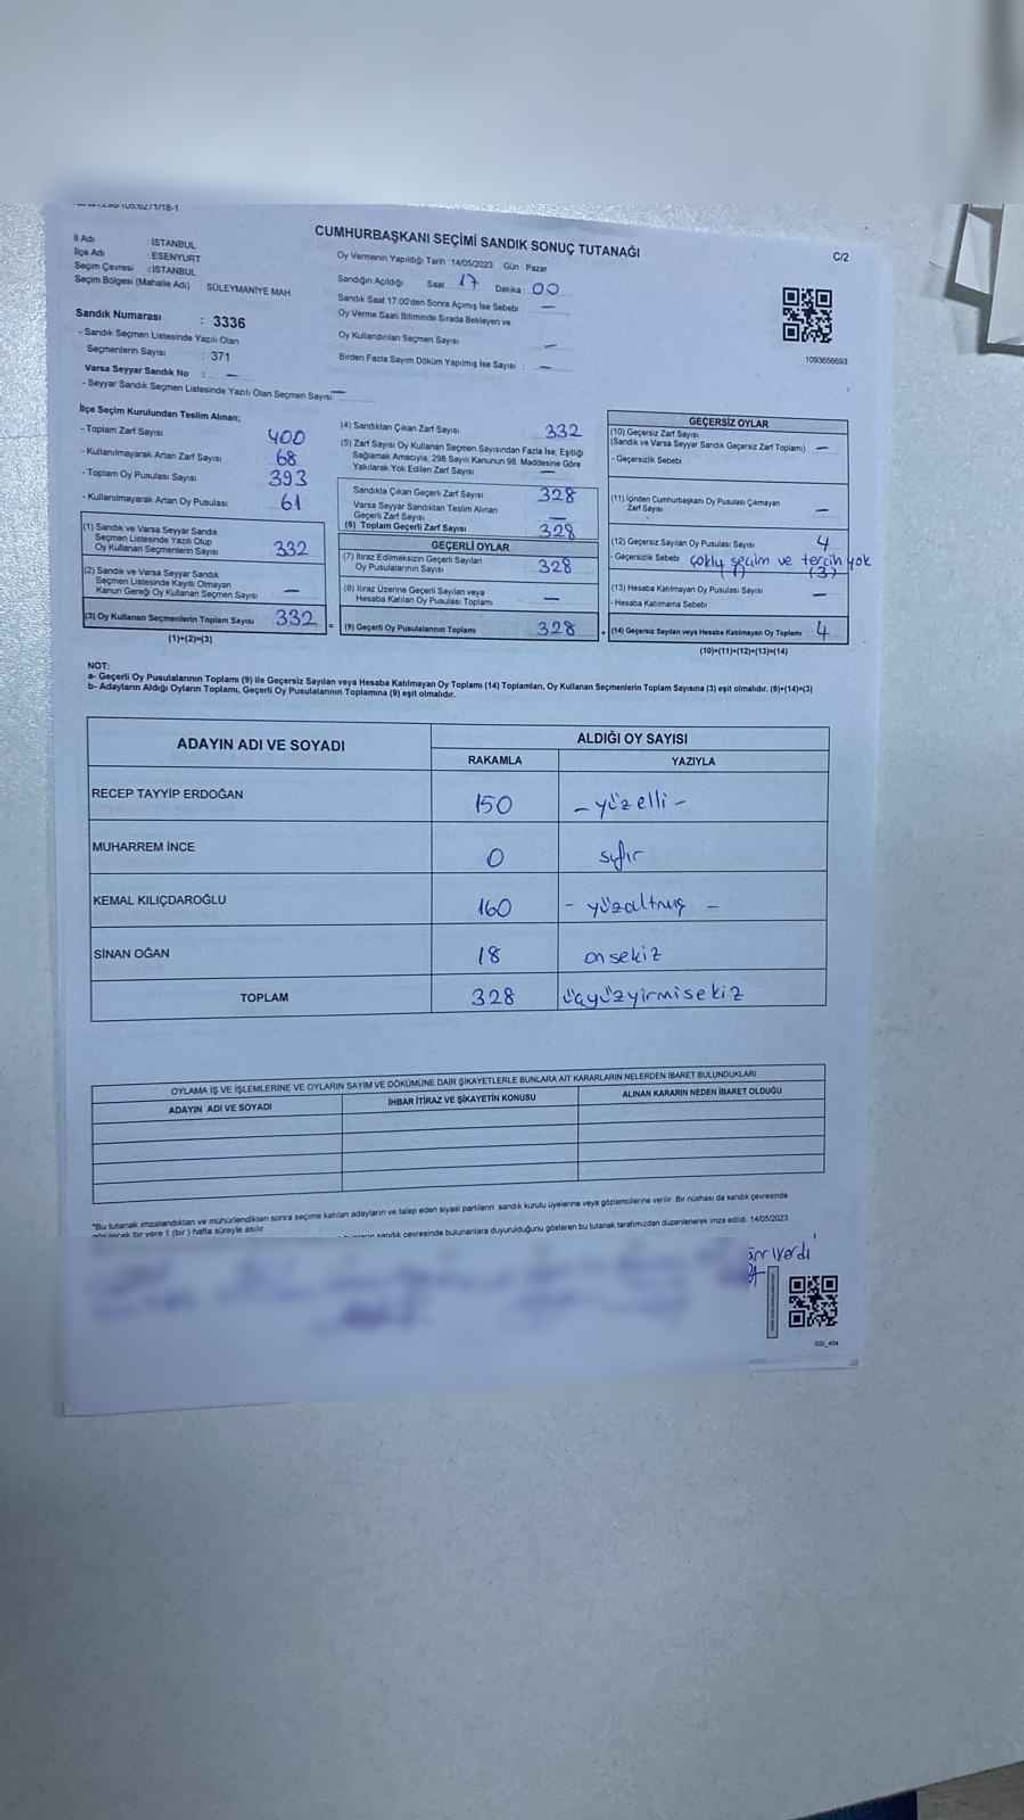 CUMHURBAŞKANI SEÇİMİ SANDIK SONUÇ TUTANAĞI
C/2
İl Adı : İSTANBUL
İlçe Adı : ESENYURT
Seçim Çevresi : İSTANBUL
Seçim Bölgesi (Mahalle Adı) SÜLEYMANİYE MAH.
Sandık Numarası : 3336
- Sandık Seçmen Listesinde Yazılı Olan
Seçmenlerin Sayısı : 371
Varsa Seyyar Sandık No : —
- Seyyar Sandık Seçmen Listesinde Yazılı Olan Seçmen Sayısı —
Oy Vermenin Yapıldığı Tarih : 14/05/2023 Gün : Pazar
Sandığın Açıldığı Saat 17 Dakika : 00
Sandık Saat 17.00'den Sonra Açılmış İse Sebebi —
Oy Verme Saati Bitiminde Sırada Bekleyen ve
Oy Kullandırılan Seçmen Sayısı —
Birden Fazla Sayım Döküm Yapılmış İse Sayısı : —
1093656693
İlçe Seçim Kurulundan Teslim Alınan;
- Toplam Zarf Sayısı 400
- Kullanılmayarak Artan Zarf Sayısı 68
- Toplam Oy Pusulası Sayısı 393
- Kullanılmayarak Artan Oy Pusulası 61
(1) Sandık ve Varsa Seyyar Sandık
Seçmen Listesinde Yazılı Olup
Oy Kullanan Seçmenlerin Sayısı 332
(2) Sandık ve Varsa Seyyar Sandık
Seçmen Listesinde Kayıtlı Olmayan
Kanun Gereği Oy Kullanan Seçmen Sayısı —
(3) Oy Kullanan Seçmenlerin Toplam Sayısı 332
(1)+(2)=(3)
(4) Sandıktan Çıkan Zarf Sayısı 332
(5) Zarf Sayısı Oy Kullanan Seçmen Sayısından Fazla İse; Eşitliği
Sağlamak Amacıyla, 298 Sayılı Kanunun 98. Maddesine Göre
Yakılarak Yok Edilen Zarf Sayısı —
Sandıkta Çıkan Geçerli Zarf Sayısı 328
Varsa Seyyar Sandıktan Teslim Alınan
Geçerli Zarf Sayısı —
(6) Toplam Geçerli Zarf Sayısı 328
GEÇERLİ OYLAR
(7) İtiraz Edilmeksizin Geçerli Sayılan
Oy Pusulalarının Sayısı 328
(8) İtiraz Üzerine Geçerli Sayılan veya
Hesaba Katılan Oy Pusulası Toplamı —
(9) Geçerli Oy Pusulalarının Toplamı 328
GEÇERSİZ OYLAR
(10) Geçersiz Zarf Sayısı
(Sandık ve Varsa Seyyar Sandık Geçersiz Zarf Toplamı) —
- Geçersizlik Sebebi
(11) İçinden Cumhurbaşkanı Oy Pusulası Çıkmayan
Zarf Sayısı —
(12) Geçersiz Sayılan Oy Pusulası Sayısı 4
- Geçersizlik Sebebi çoklu seçim ve tercih yok
(1) (3)
(13) Hesaba Katılmayan Oy Pusulası Sayısı —
- Hesaba Katılmama Sebebi
(14) Geçersiz Sayılan veya Hesaba Katılmayan Oy Toplamı 4
(10)+(11)+(12)+(13)=(14)
NOT:
a- Geçerli Oy Pusulalarının Toplamı (9) ile Geçersiz Sayılan veya Hesaba Katılmayan Oy Toplamı (14) Toplamları, Oy Kullanan Seçmenlerin Toplam Sayısına (3) eşit olmalıdır. (9)+(14)=(3)
b- Adayların Aldığı Oyların Toplamı, Geçerli Oy Pusulalarının Toplamına (9) eşit olmalıdır.
ADAYIN ADI VE SOYADI ALDIĞI OY SAYISI
RAKAMLA YAZIYLA
RECEP TAYYİP ERDOĞAN 150 - yüzelli -
MUHARREM İNCE 0 sıfır
KEMAL KILIÇDAROĞLU 160 - yüzaltmış -
SİNAN OĞAN 18 onsekiz
TOPLAM 328 üçyüzyirmisekiz
OYLAMA İŞ VE İŞLEMLERİNE VE OYLARIN SAYIM VE DÖKÜMÜNE DAİR ŞİKAYETLERLE BUNLARA AİT KARARLARIN NELERDEN İBARET BULUNDUKLARI
ADAYIN ADI VE SOYADI İHBAR İTİRAZ VE ŞİKAYETİN KONUSU ALINAN KARARIN NEDEN İBARET OLDUĞU
"Bu tutanak imzalandıktan ve mühürlendikten sonra seçime katılan adayların ve talep eden siyasi partilerin sandık kurulu üyelerine veya gözlemcilerine verilir. Bir nüshası da sandık çevresinde
bir yere 1 (bir) hafta süreyle asılır.
sandık çevresinde bulunanlara duyurulduğunu gösteren bu tutanak tarafımızdan düzenlenerek imza edildi. 14/05/2023